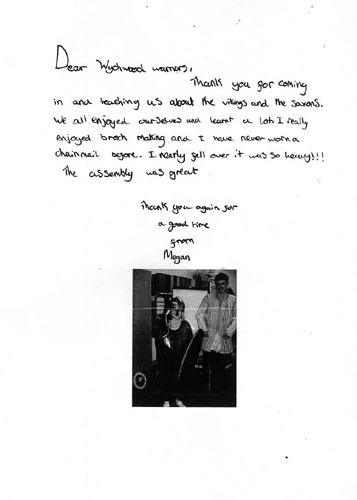 Dear Wychwood warriors,
Thank you for coming
in and teaching us about the vikings and the saxons.
We all enjoyed ourselves and learnt a lot. I really
enjoyed broch making and I have never worn a
chainmail before. I nearly fell over it was so heavy!!!
The assembly was great
Thank you again for
a good time
from
Megan